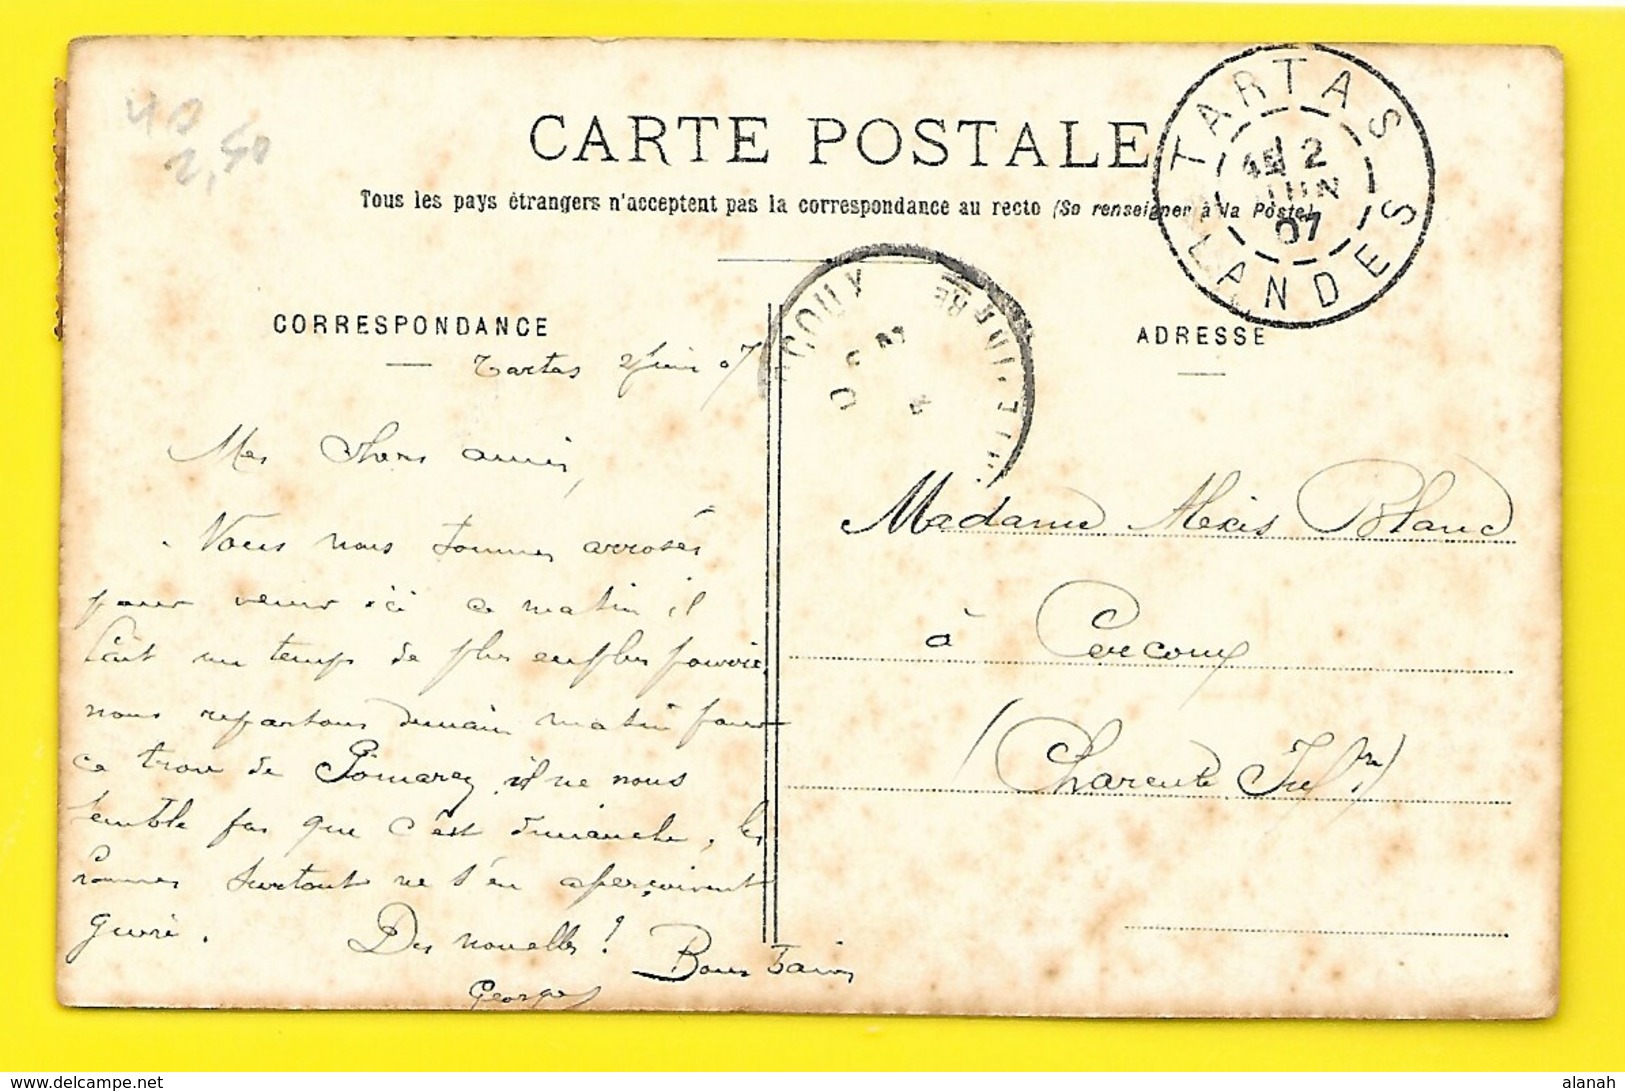 40
2,50
CARTE POSTALE
Tous les pays étrangers n'acceptent pas la correspondance au recto (Se renseigner à la Poste)
TARTAS
2
JUIN
07
LANDES
CORRESPONDANCE
ADRESSE
Tartas 2 juin 07
Mes Chers amis,
Nous nous sommes arrosés
pour venir ici ce matin il
fait un temps de plus en plus
nous repartons demain matin pour
ce trou de Pomarez, il ne nous
semble pas que c'est dimanche, les
surtout ne s'en aperçoivent
guère. Des nouvelles !
Georges
Madame Alexis Bland
à Cercoux
(Charente Inf.re)
delcampe.net
alanah